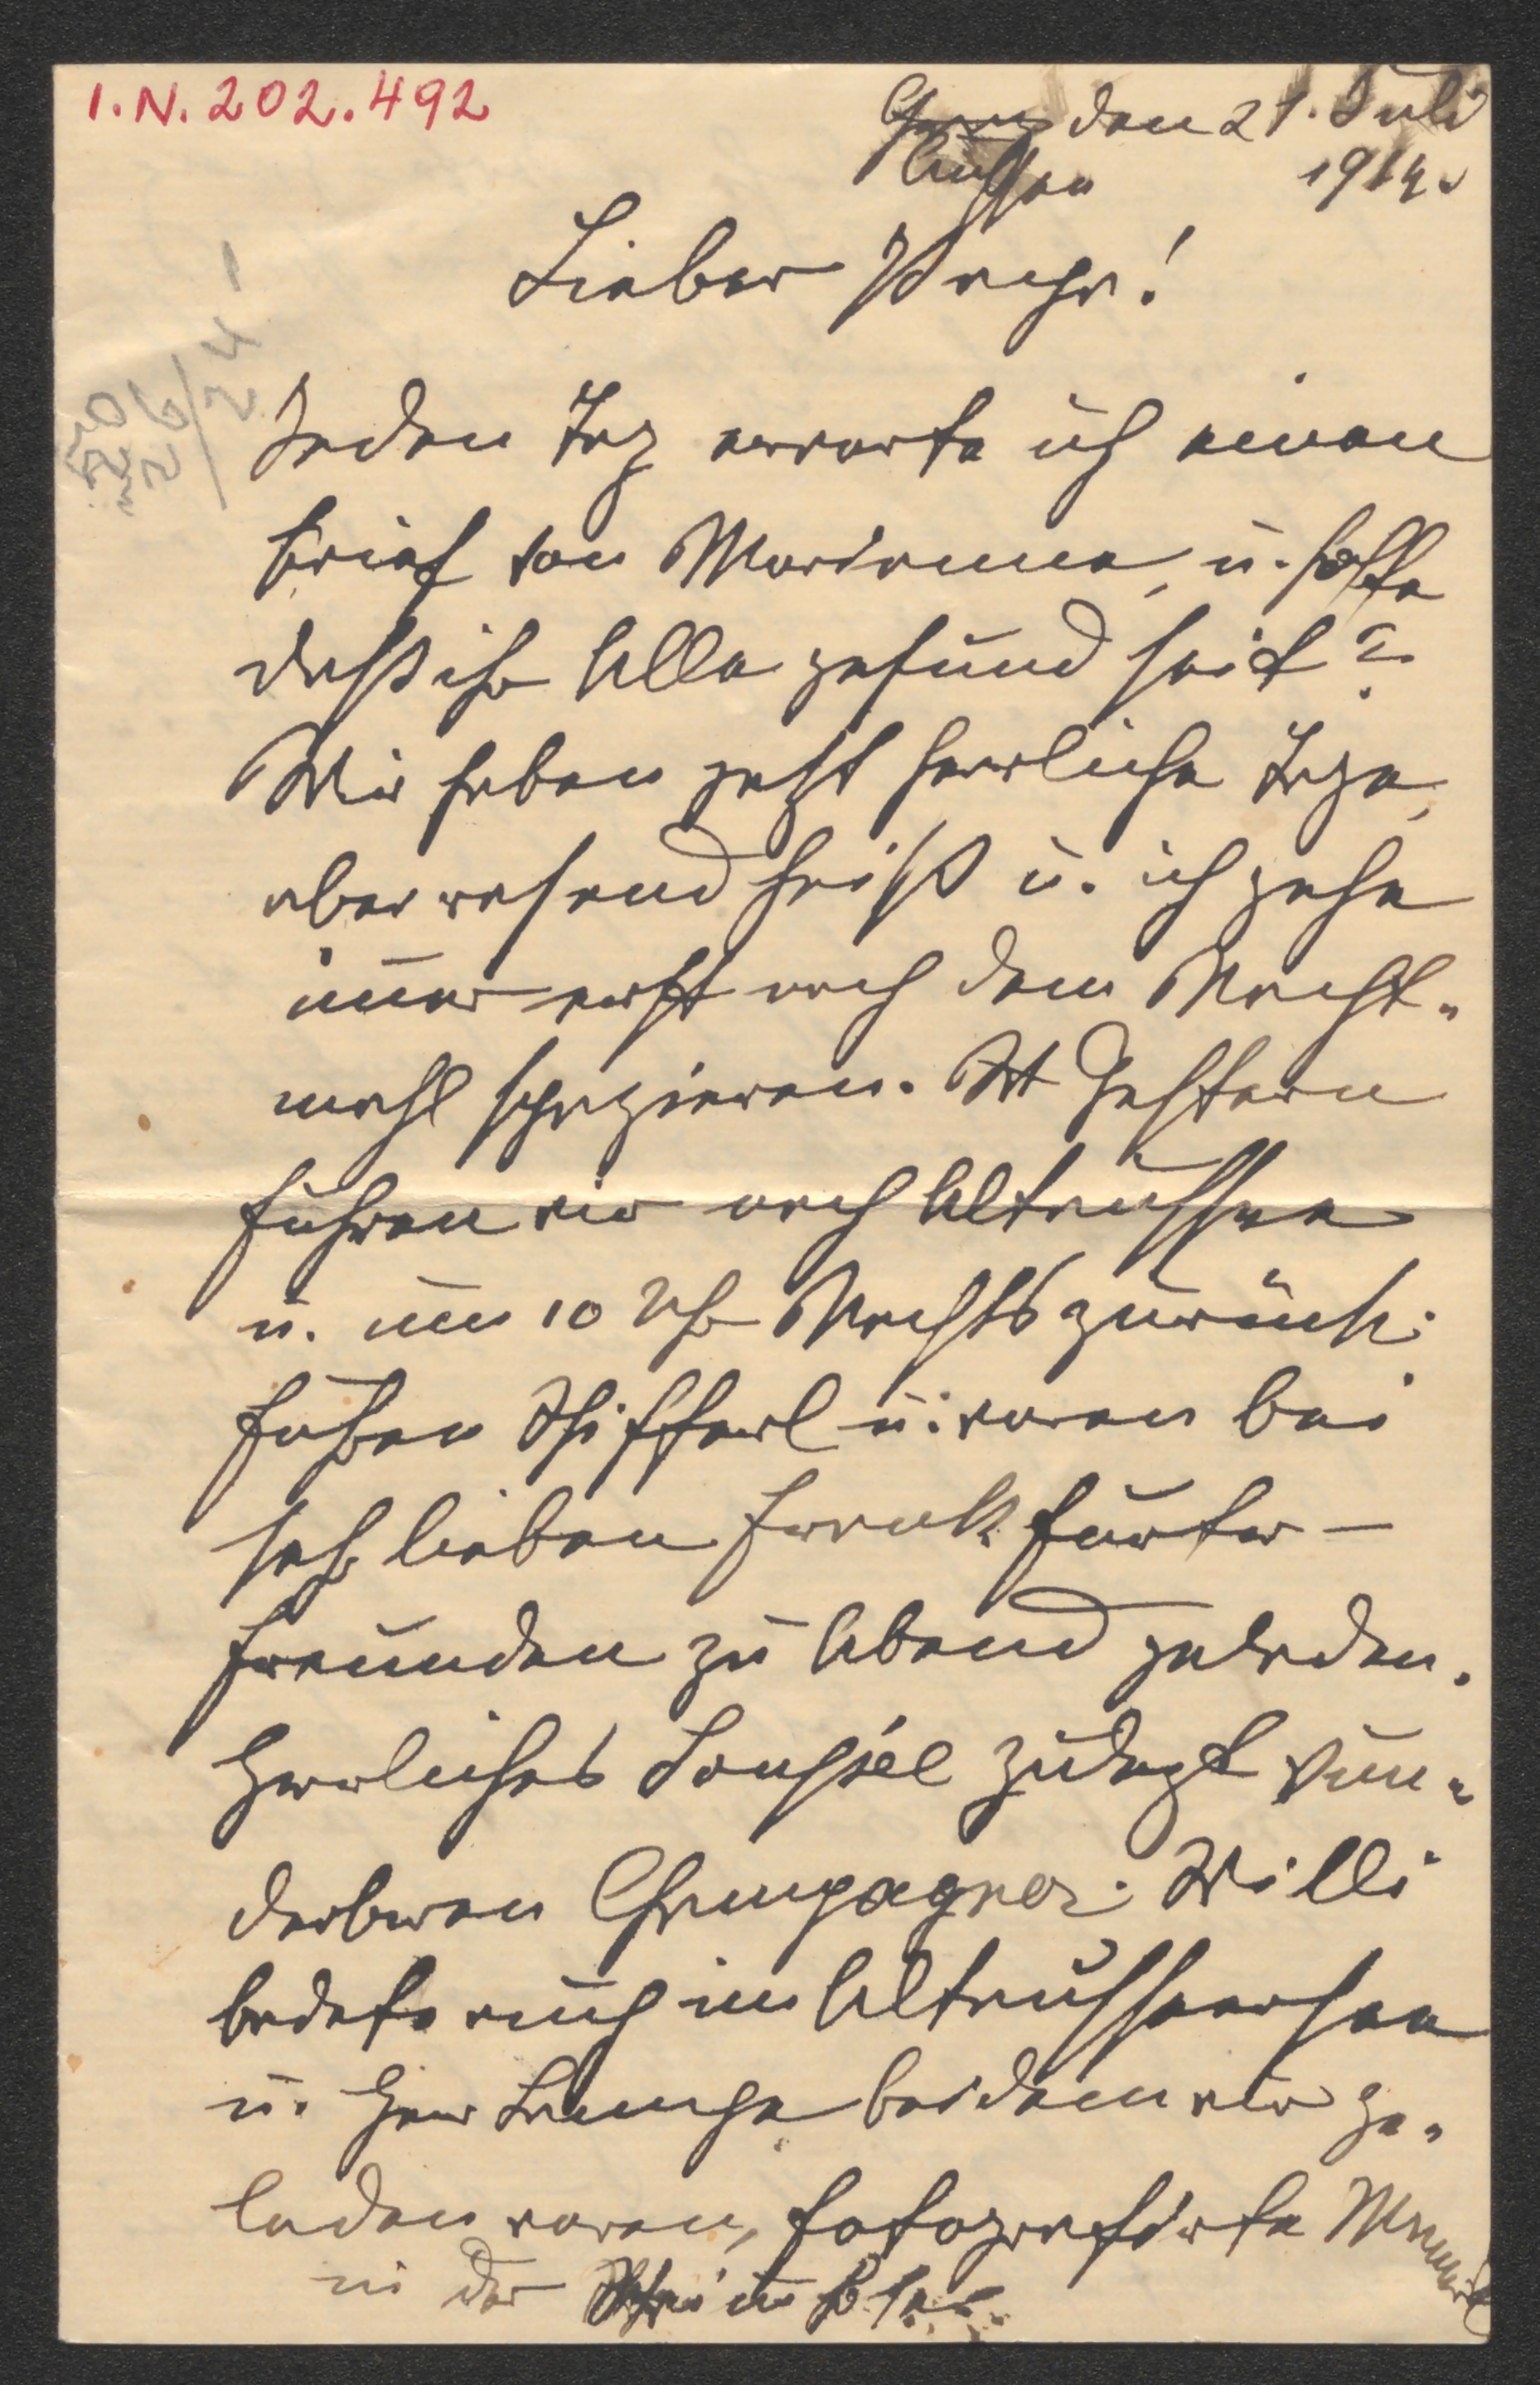 I.N. 202.492
den 21. Juli
Aussee 1914.
Lieber Papa!
Jeden Tag erwarte ich einen
Brief von Marianne, u. hoffe
daß ihr Alle gesund seit?
Wir haben jetzt herrliche Tage,
aber rasend heiß u. ich gehe
im̅er erst nach dem Nacht-
mahl spazieren. Gestern
fuhren wir nach Altaussee
u. um 10 Uhr Nachts zurück.
Fuhren Schifferl u. waren bei
sehr lieben Frankfurter-
Freunden zu Abend geladen.
Herrliches Soupèe zuletzt wun-
derbaren Champagner. Willi
badete auch im Altausseersee
u. Herr bei dem wir ge-
laden waren, fotografirte
in der